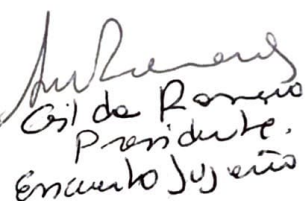 Gilda Romero
Presidente.
Encuentro Jujeño